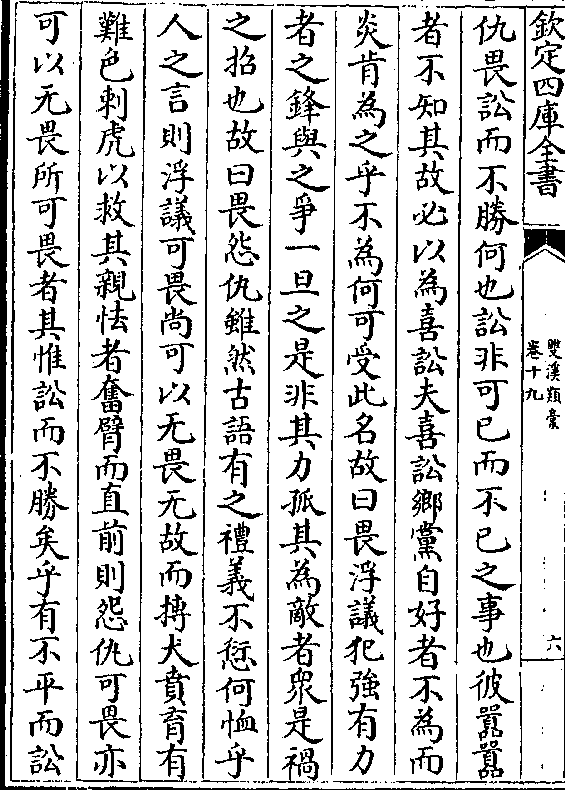 欽定四庫全書
雙溪類藁
卷十九
六
仇畏訟而不勝何也訟非可已而不已之事也彼囂囂
者不知其故必以為喜訟夫喜訟鄉黨自好者不為而
炎肯為之乎不為何可受此名故曰畏浮議犯強有力
者之鋒與之爭一旦之是非其力孤其為敵者衆是禍
之招也故曰畏怨仇雖然古語有之禮義不愆何恤乎
人之言則浮議可畏尚可以无畏无故而搏犬賁育有
難色刺虎以救其親怯者奮臂而直前則怨仇可畏亦
可以无畏所可畏者其惟訟而不勝矣乎有不平而訟